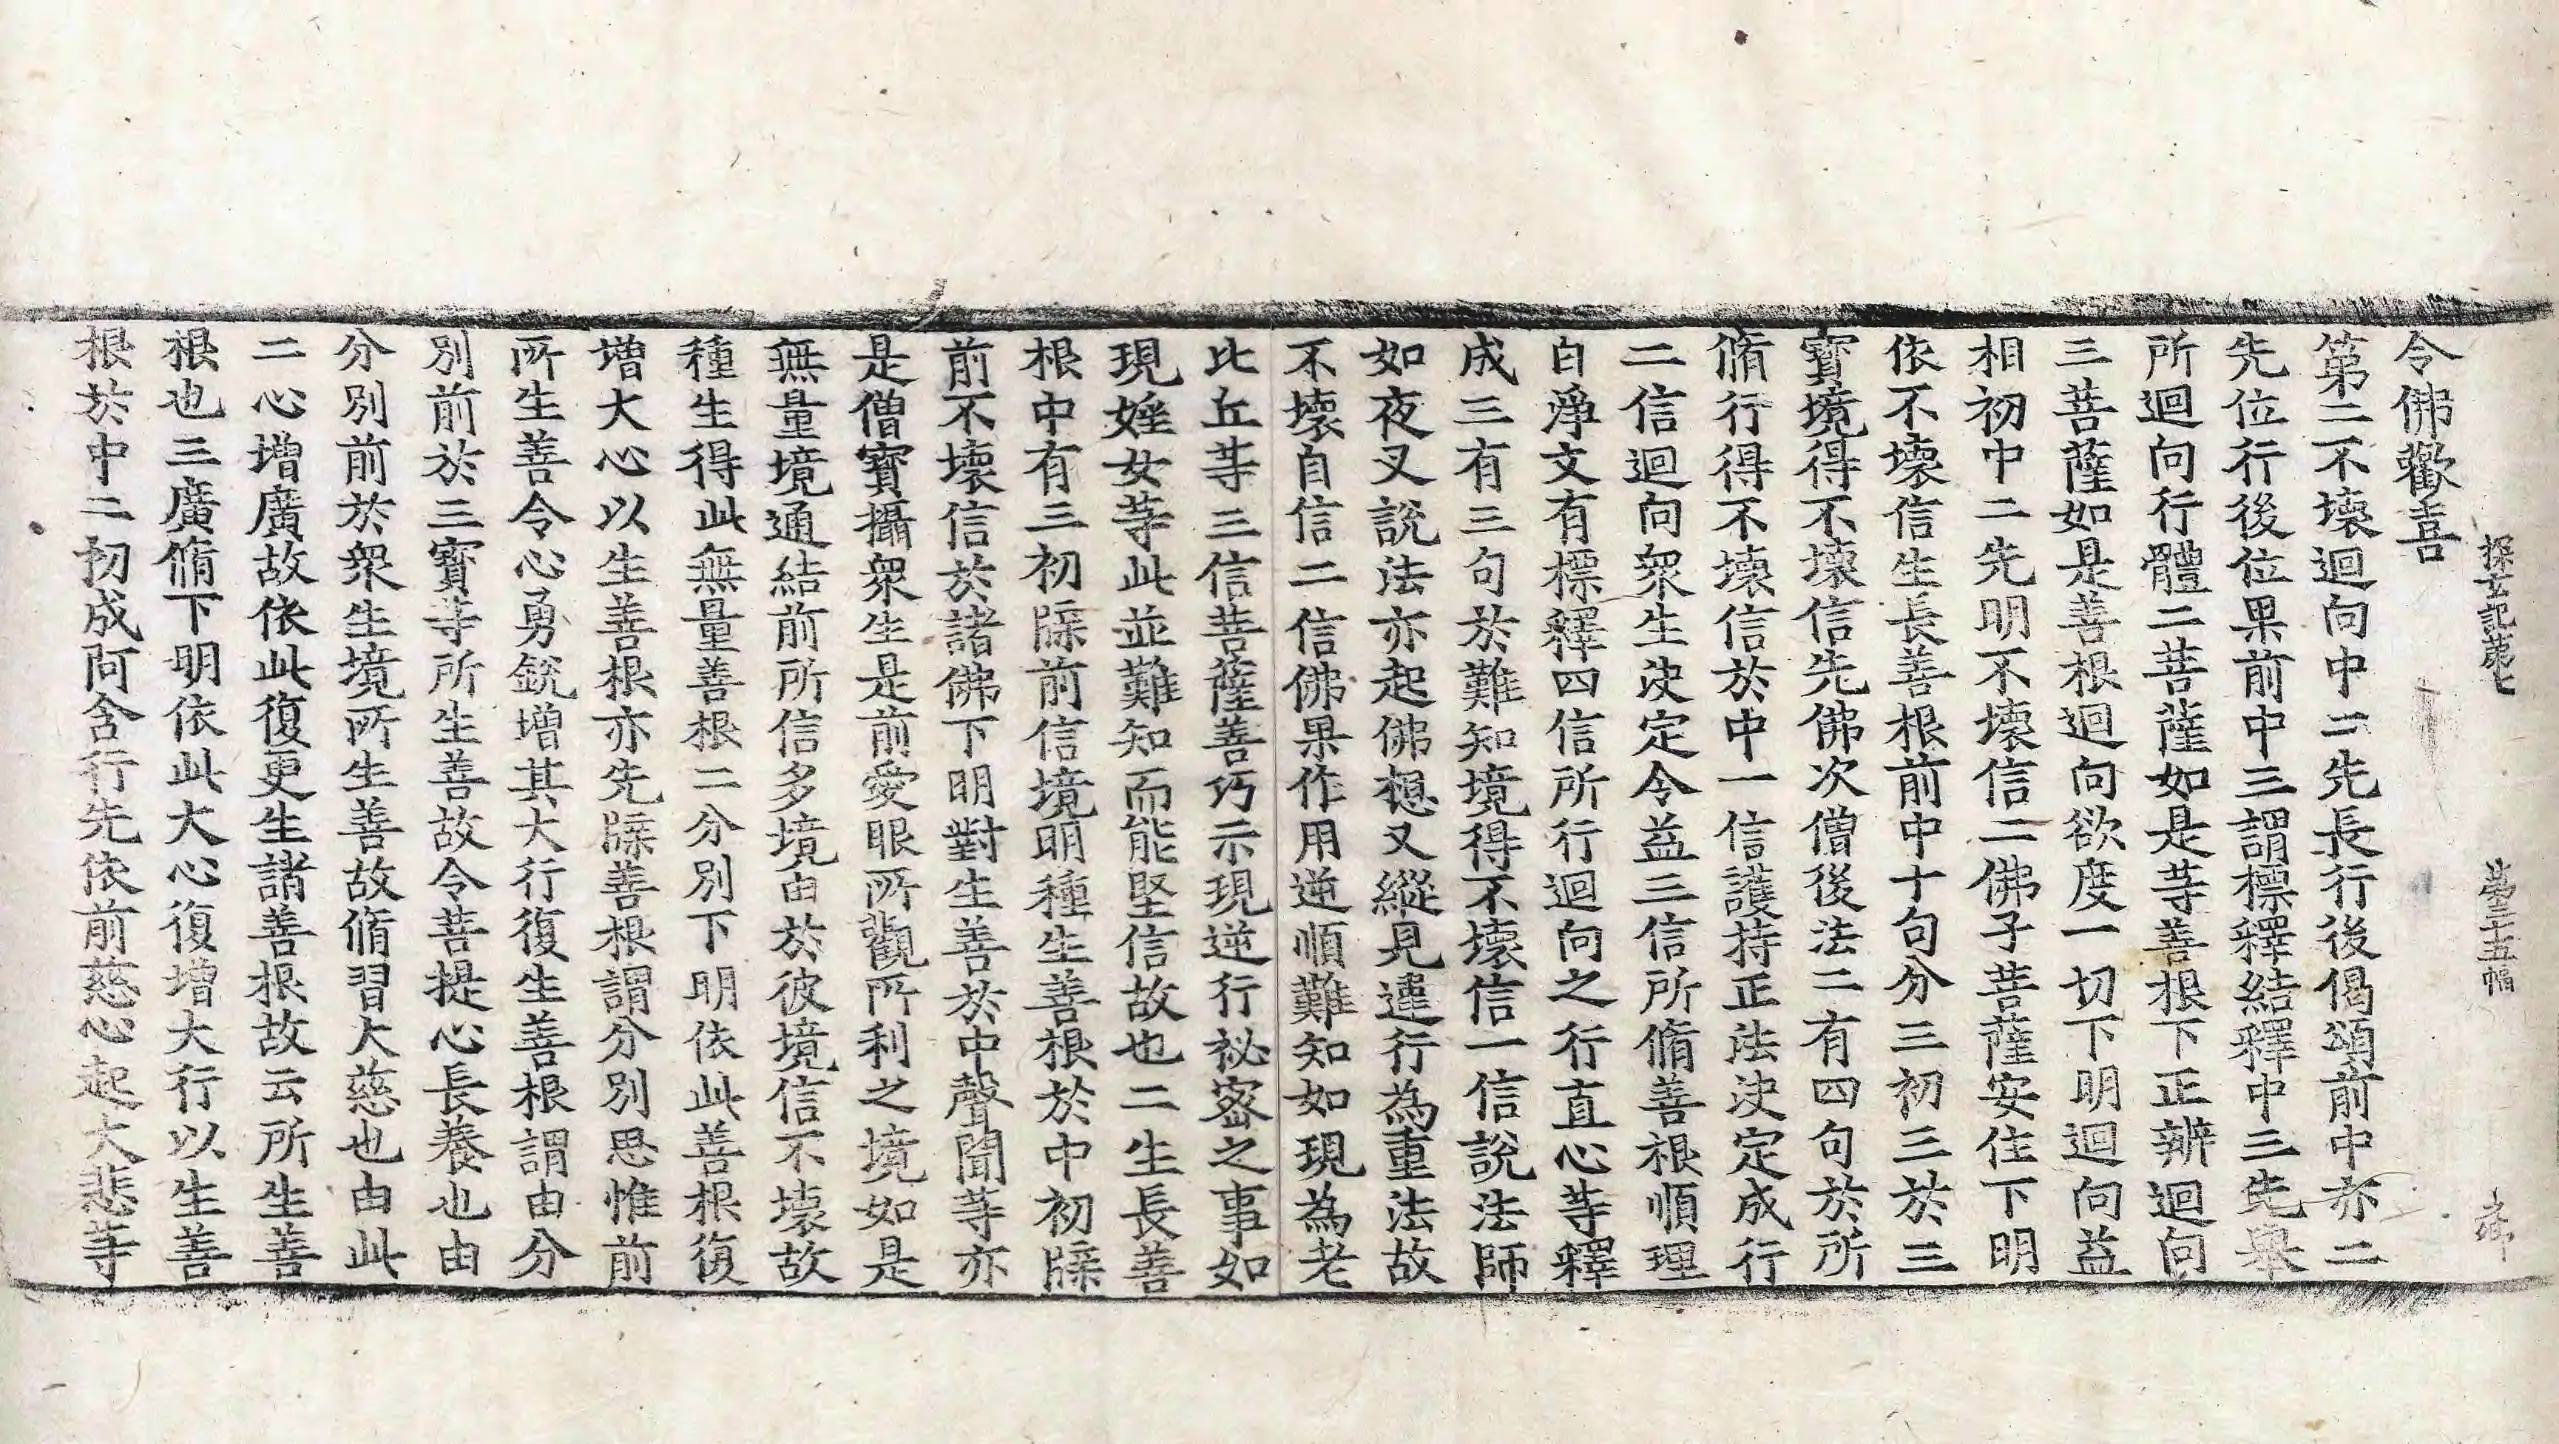 探玄記第七　第三十五幅
令佛歡喜
第二不壞迴向中二先長行後偈頌前中亦二
先位行後位果前中三謂標釋結釋中三先舉
所迴向行體二菩薩如是等善根下正辨迴向
三菩薩如是善根迴向欲度一切下明迴向益
相初中二先明不壞信二佛子菩薩安住下明
依不壞信生長善根前中十句分三初三於三
寶境得不壞信先佛次僧後法二有四句於所
脩行得不壞信於中一信護持正法決定成行
二信迴向衆生決定令益三信所脩善根順理
白淨文有標釋四信所行迴向之行直心等釋
成三有三句於難知境得不壞信一信說法師
如夜叉說法亦起佛想又縱見違行為重法故
不壞自信二信佛果作用逆順難知如現為老
比丘等三信菩薩善巧示現逆行祕密之事如
現婬女等此並難知而能堅信故也二生長善
根中有三初牒前信境明種生善根於中初牒
前不壞信於諸佛下明對生善於中聲聞等亦
是僧寶攝衆生是前愛眼所觀所利之境如是
無量境通結前所信多境由於彼境信不壞故
種生得此無量善根二分別下明依此善根復
增大心以生善根亦先牒善根謂分別思惟前
所生善令心勇銳增其大行復生善根謂由分
別前於三寶等所生善故令菩提心長養也由
分別前於衆生境所生善故脩習大慈也由此
二心增廣故依此復更生諸善根故云所生善
根也三廣脩下明依此大心復增大行以生善
根於中二初成阿含行先依前慈心起大悲等